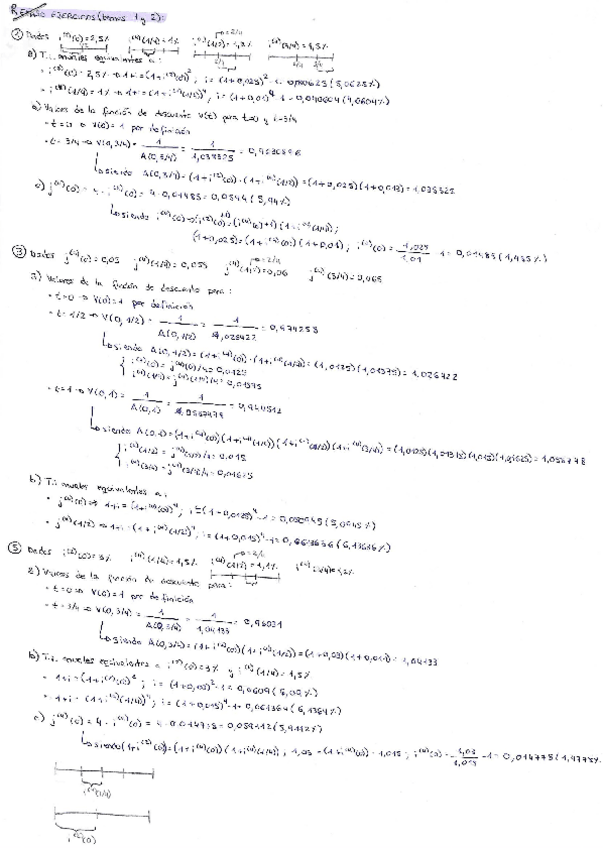 REPASO EJERCICIOS (temas 1 y 2):
① Dados i⁽²⁾(0)=2,5% i⁽⁴⁾(1/4)=1% i⁽⁴⁾(1/2)=1,3% i⁽⁴⁾(3/4)=1,5%
equivalentes a:
i⁽²⁾(0)=2,5% → 1+i=(1+i⁽²⁾(0))², i=(1+0,025)²-1=0,050625 (5,0625%)
i⁽⁴⁾(1/4)=1% → 1+i=(1+i⁽⁴⁾(1/4))⁴, i=(1+0,01)⁴-1=0,040604 (4,0604%)
Valores de la función de descuento V(t) para t=0 y t=3/4
t=0 → V(0)=1 por definición
t=3/4 → V(0,3/4)= 1/A(0,3/4) = 1/1,038325 =
siendo A(0,3/4)=(1+i⁽²⁾(0))·(1+i⁽⁴⁾(1/2))=(1+0,025)(1+0,013)=1,038325
c) j⁽⁴⁾(0)=4·i⁽⁴⁾(0)=4·0,01485=0,0594 (5,94%)
siendo
(1+0,025)=(1+i⁽⁴⁾(0))(1+0,01); i⁽⁴⁾(0)= 1,025/1,01 -1=0,01485 (1,485%)
③ Dados j⁽⁴⁾(0)=0,05 j⁽⁴⁾(1/4)=0,055 j⁽⁴⁾(1/2)=0,06 j⁽⁴⁾(3/4)=0,065
a) Valores de la función de descuento para:
t=0 → V(0)=1 por definición
t=1/2 → V(0,1/2)= 1/A(0,1/2) = 1/ = 0,974253
siendo A(0,1/2)=(1+i⁽⁴⁾(0))·(1+i⁽⁴⁾(1/4))=(1,0125)(1,01375)=
i⁽⁴⁾(0)=j⁽⁴⁾(0)/4=0,0125
i⁽⁴⁾(1/4)=j⁽⁴⁾(1/4)/4=0,01375
t=1 → V(0,1)= 1/A(0,1) =
siendo A(0,1)=(1+i⁽⁴⁾(0))(1+i⁽⁴⁾(1/4))(1+i⁽⁴⁾(2/4))(1+i⁽⁴⁾(3/4))=(1,0125)(1,01375)(1,015)(1,01625)=
i⁽⁴⁾(1/2)=j⁽⁴⁾(1/2)/4=0,015
i⁽⁴⁾(3/4)=j⁽⁴⁾(3/4)/4=0,01625
b) T.i. anuales equivalentes a:
j⁽⁴⁾(0) → 1+i=(1+i⁽⁴⁾(0))⁴, i=(1+0,0125)⁴-1=0,050945 (5,0945%)
j⁽⁴⁾(1/2) → 1+i=(1+i⁽⁴⁾(1/2))⁴, i=(1+0,015)⁴-1=0,0613636 (6,13636%)
⑤ Dados i⁽²⁾(0)=3% i⁽⁴⁾(1/4)=1,5% i⁽⁴⁾(1/2)=1,1% i⁽⁴⁾(3/4)=1,2%
a) Valores de la función de descuento para:
t=0 → V(0)=1 por definición
t=3/4 → V(0,3/4)= 1/A(0,3/4) = 1/1,04133 = 0,96031
siendo A(0,3/4)=(1+i⁽²⁾(0))(1+i⁽⁴⁾(1/2))=(1+0,03)(1+0,011)=1,04133
b) T.i. anuales equivalentes a i⁽²⁾(0)=3% y i⁽⁴⁾(1/4)=1,5%
1+i=(1+i⁽²⁾(0))²; i=(1+0,03)²-1=0,0609 (6,09%)
1+i=(1+i⁽⁴⁾(1/4))⁴; i=(1+0,015)⁴-1=0,061364 (6,1364%)
c) j⁽⁴⁾(0)=4·i⁽⁴⁾(0)=4·0,014778=0,059112 (5,9112%)
siendo (1+i⁽²⁾(0))=(1+i⁽⁴⁾(0))(1+i⁽⁴⁾(1/4)); 1,03=(1+i⁽⁴⁾(0))·1,015; i⁽⁴⁾(0)= 1,03/1,015 -1=0,014778 (1,4778%)
i⁽⁴⁾(1/4)
i⁽²⁾(0)